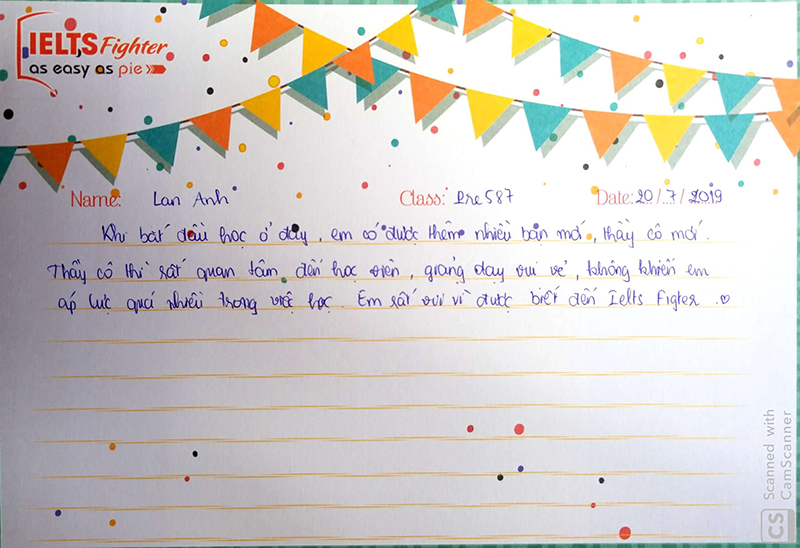 IELTS Fighter
as easy as pie
Name: Lan Anh Class: Pre 587 Date: 20/7/2019
Khi bắt đầu học ở đây, em có được thêm nhiều bạn mới, thầy cô mới.
Thầy cô thì rất quan tâm đến học viên, giảng dạy vui vẻ, không khiến em
áp lực quá nhiều trong việc học. Em rất vui vì được biết đến Ielts Figter.♡
Scanned with
CamScanner
CS